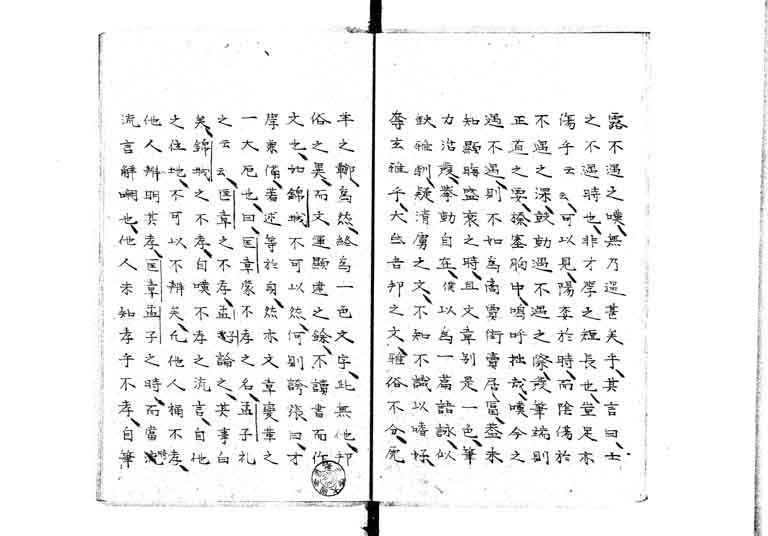 露不遇之嘆無乃過甚矣乎其言曰士
之不遇時也非才學之短長也豈足亦
傷乎云云可以見陽委於時而陰傷於
不遇之深鼓動遇不遇之際發筆端則
正道之要榛塞胸中嗚呼拙哉嘆今之
遇不遇則不如為商賣衒賣居富盖未
知顯晦盛衰之時且文章别是一色筆
力沿發挙動自在僕以為一篇語詠似
缺雅馴疑清虜之文不知不識以嗜好
奪玄雅乎大氐吾邦之文雅俗不分
半之鄿為然絡為一色文字此無他邦
俗之異而文運顯達之餘不讀書而作
文也如錦城不可以然何則誇張曰才
學兼備著述等於身然亦文章慶華之
一大厄也曰匡章蒙不孝之名孟子礼
之云云匡章之不孝孟子論之其事白
矣錦城之不孝自嘆不孝之流言自他
之住地不可以不辨矣凡他人稱不孝
他人辨明其孝匡章孟子之時而當
流言解嘲也他人未知孝乎不孝自筆